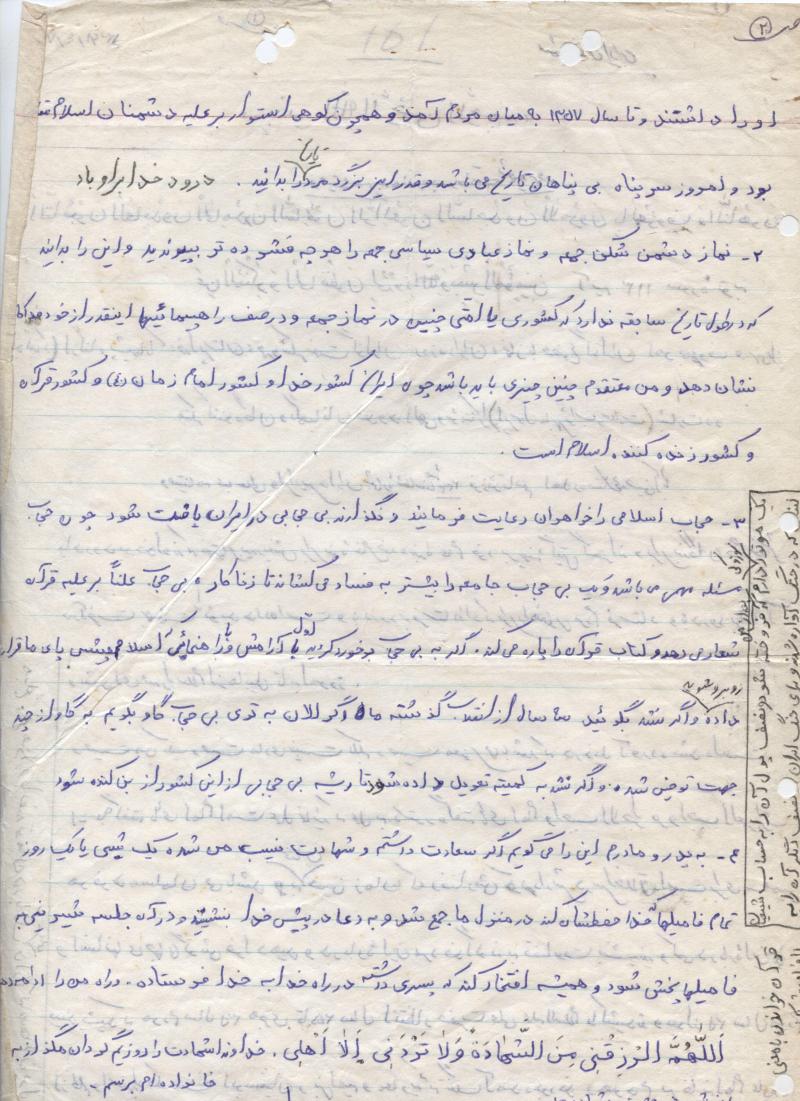 ص ۲
او را داشتند و تا سال ۱۳۵۷ به میان مردم آمد و همچون کوهی استوار بر علیه دشمنان اسلام
بود و امروز سر پناه بی پناهان تاریخ می باشد و قدر این بزرگ مرد تاریخ را بدانید . درود خدا بر او باد
۲- نماز دشمن شکن جمعه و نماز عبادی سیاسی جمعه را هر چه فشرده تر بپیوندید و این را بدانید
که در طول تاریخ سابقه ندارد که کشوری یا امتی چنین در نماز جمعه و در صف راهپیمائیها اینقدر از خود
نشان دهد و من معتقدم چنین چیزی باید باشد چون ایران کشور خدا و کشور امام زمان (عج) و کشور قرآن
و کشور زنده کننده اسلام است .
۳- حجاب اسلامی را خواهران رعایت فرمایند و نگذارند بی حجابی در ایران یافت شود چون حجاب
مسئله مهمی می باشد و بی حجاب جامعه را بیشتر به فساد می کشاند تا زناکار ، بی حجاب علناً بر علیه قرآن
شعار می دهد و کتاب قرآن را پاره می کند . اگر به بی حجاب برخورد کردید اول با آرامش و با راهنمائی اسلام پیشی پای ما قرار
داده روبرو شوید و اگر نشد بگوئید سالی از انقلاب گذشته ما اگر الان به توی بی حجاب گاو بگویم به گاو از چند
جهت توهین شده . و اگر نشد به کمیته تحویل داده شود تا ریشه بی حجابی از این کشور از بن کنده شود
۴- به پدر و مادرم این را می گویم اگر سعادت داشتم و شهادت نصیب من شده یک شبی یا یک روز
تمام فامیلها خدا حفظشان کند در منزل ما جمع شد و به دعا در پیش خدا بنشینند و در آن جلسه شیرینی به
فامیلها پخش شود و همیشه افتخار کند که پسری داشته در راه خدا به خدا فرستاده . و راه من را ادامه
اَللّهُمَّ الرْزُقْنِی مِنَ الشَّهادَةَ وَلا تَرُدَّنِی اِلا اَهْلِی . خداوندا شهادت را روزیم گردان مگذار به
خانواده ام برسم .
یک موتور دارم که فروخته شود و نصف پول آن را به حساب